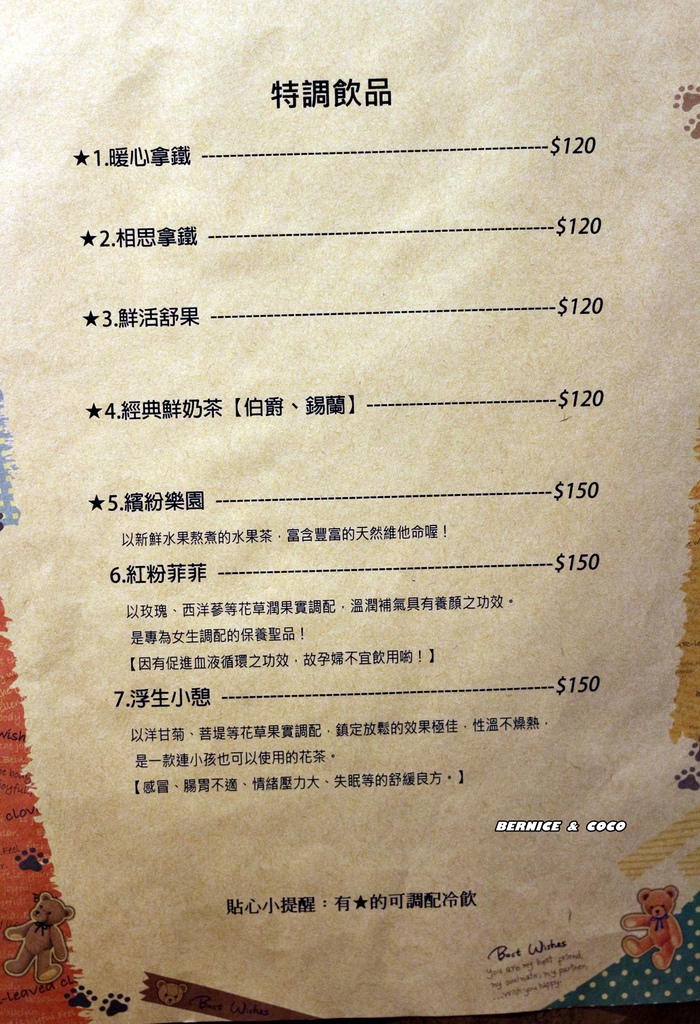 特調飲品
★1.暖心拿鐵 ----------------------------------------------$120
★2.相思拿鐵 ----------------------------------------------$120
★3.鮮活舒果 ----------------------------------------------$120
★4.經典鮮奶茶【伯爵、錫蘭】 -------------------------$120
★5.繽紛樂園 ---------------------------------------------$150
以新鮮水果熬煮的水果茶，富含豐富的天然維他命喔！
6.紅粉菲菲 ---------------------------------------------$150
以玫瑰、西洋蔘等花草潤果實調配，溫潤補氣具有養顏之功效。
是專為女生調配的保養聖品！
【因有促進血液循環之功效，故孕婦不宜飲用喲！】
7.浮生小憩 ---------------------------------------------$150
以洋甘菊、菩堤等花草果實調配，鎮定放鬆的效果極佳，性溫不燥熱，
是一款連小孩也可以使用的花茶。
【感冒、腸胃不適、情緒壓力大、失眠等的舒緩良方。】
BERNICE & COCO
貼心小提醒：有★的可調配冷飲
Best Wishes
you are my best friend,
my soulmate, my partner
...wish you happy!
Best Wishes